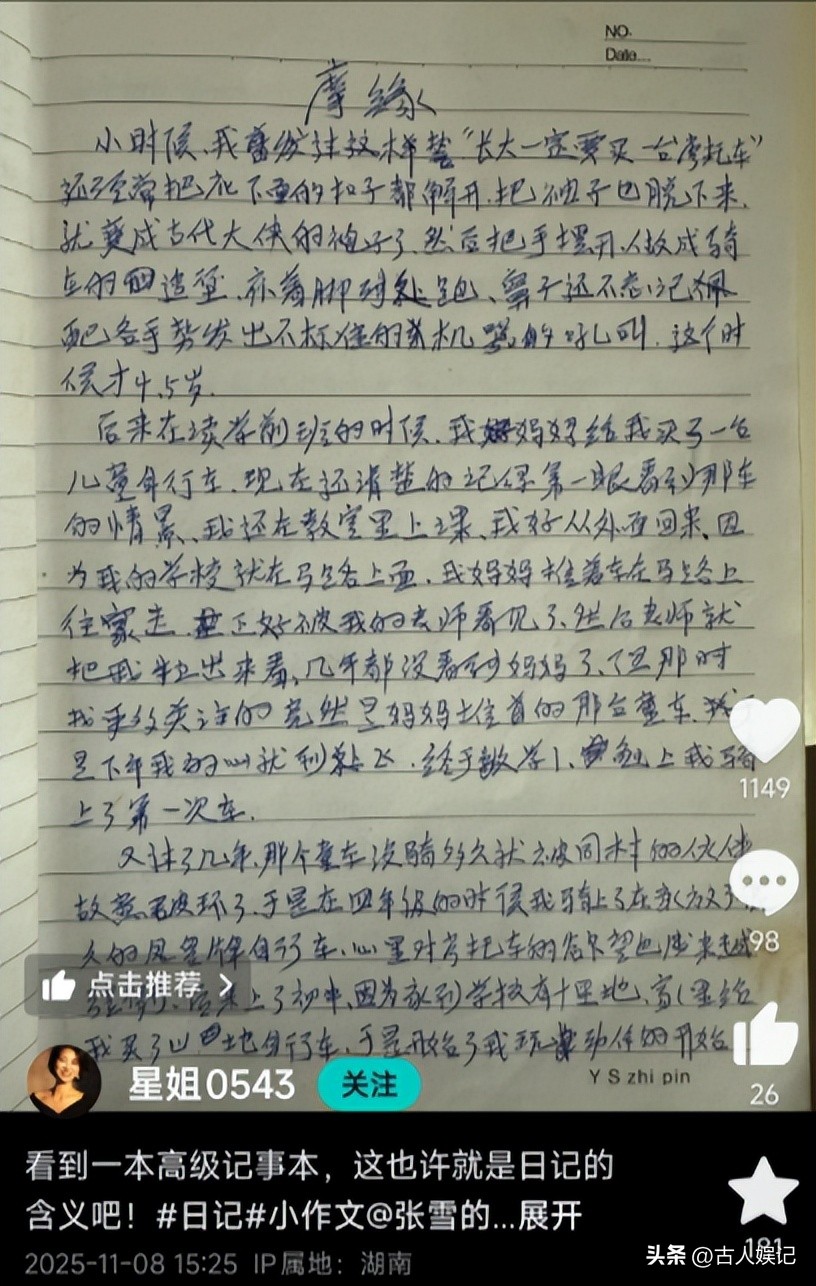 NO.
Date...
摩缘
小时候、我曾经发过这样誓“长大一定要买一台摩托车”
还经常把衣下面的扣子都解开.把袖子也脱下来,
就变成古代大侠的袍子了.然后把手摆开,做成骑
车的造型.亦着脚到处跑、鼻子还不忘记
配合手势发出不标准的机的吼叫.这个时
候才4.5岁.
后来在读学前班的时候.我妈妈给我买了一台
儿童自行车.现在还清楚的记得第一眼看到那车
的情景、我还在教室里上课、我妈从外面回来、因
为我的学校就在马路上面.我妈妈推着车在马路上
往家走.正好被我的老师看见了.然后老师就
把我拉出来看、几年都没看到妈妈了、但那时
我更多关注的竟然是妈妈推着的那台童车.
是下午我的心就到处飞.终于放学了、晚上我骑
上了第一次车.
又过了几年.那个童车没骑多久就被同村的伙伴
故意破坏了.于是在四年级的时候我骑上了在家放了
久的凤凰牌自行车.心里对摩托车的渴望也越来越
后来上了初中、因为家到学校有十里地、家里给
我买了山地自行车.于是开始了我玩动作的开始
Y S zhi pin
点击推荐 >
1149
98
26
星姐0543
关注
看到一本高级记事本，这也许就是日记的
含义吧！#日记#小作文@张雪的...展开
2025-11-08 15:25 IP属地：湖南
181
头条 @古人娱记